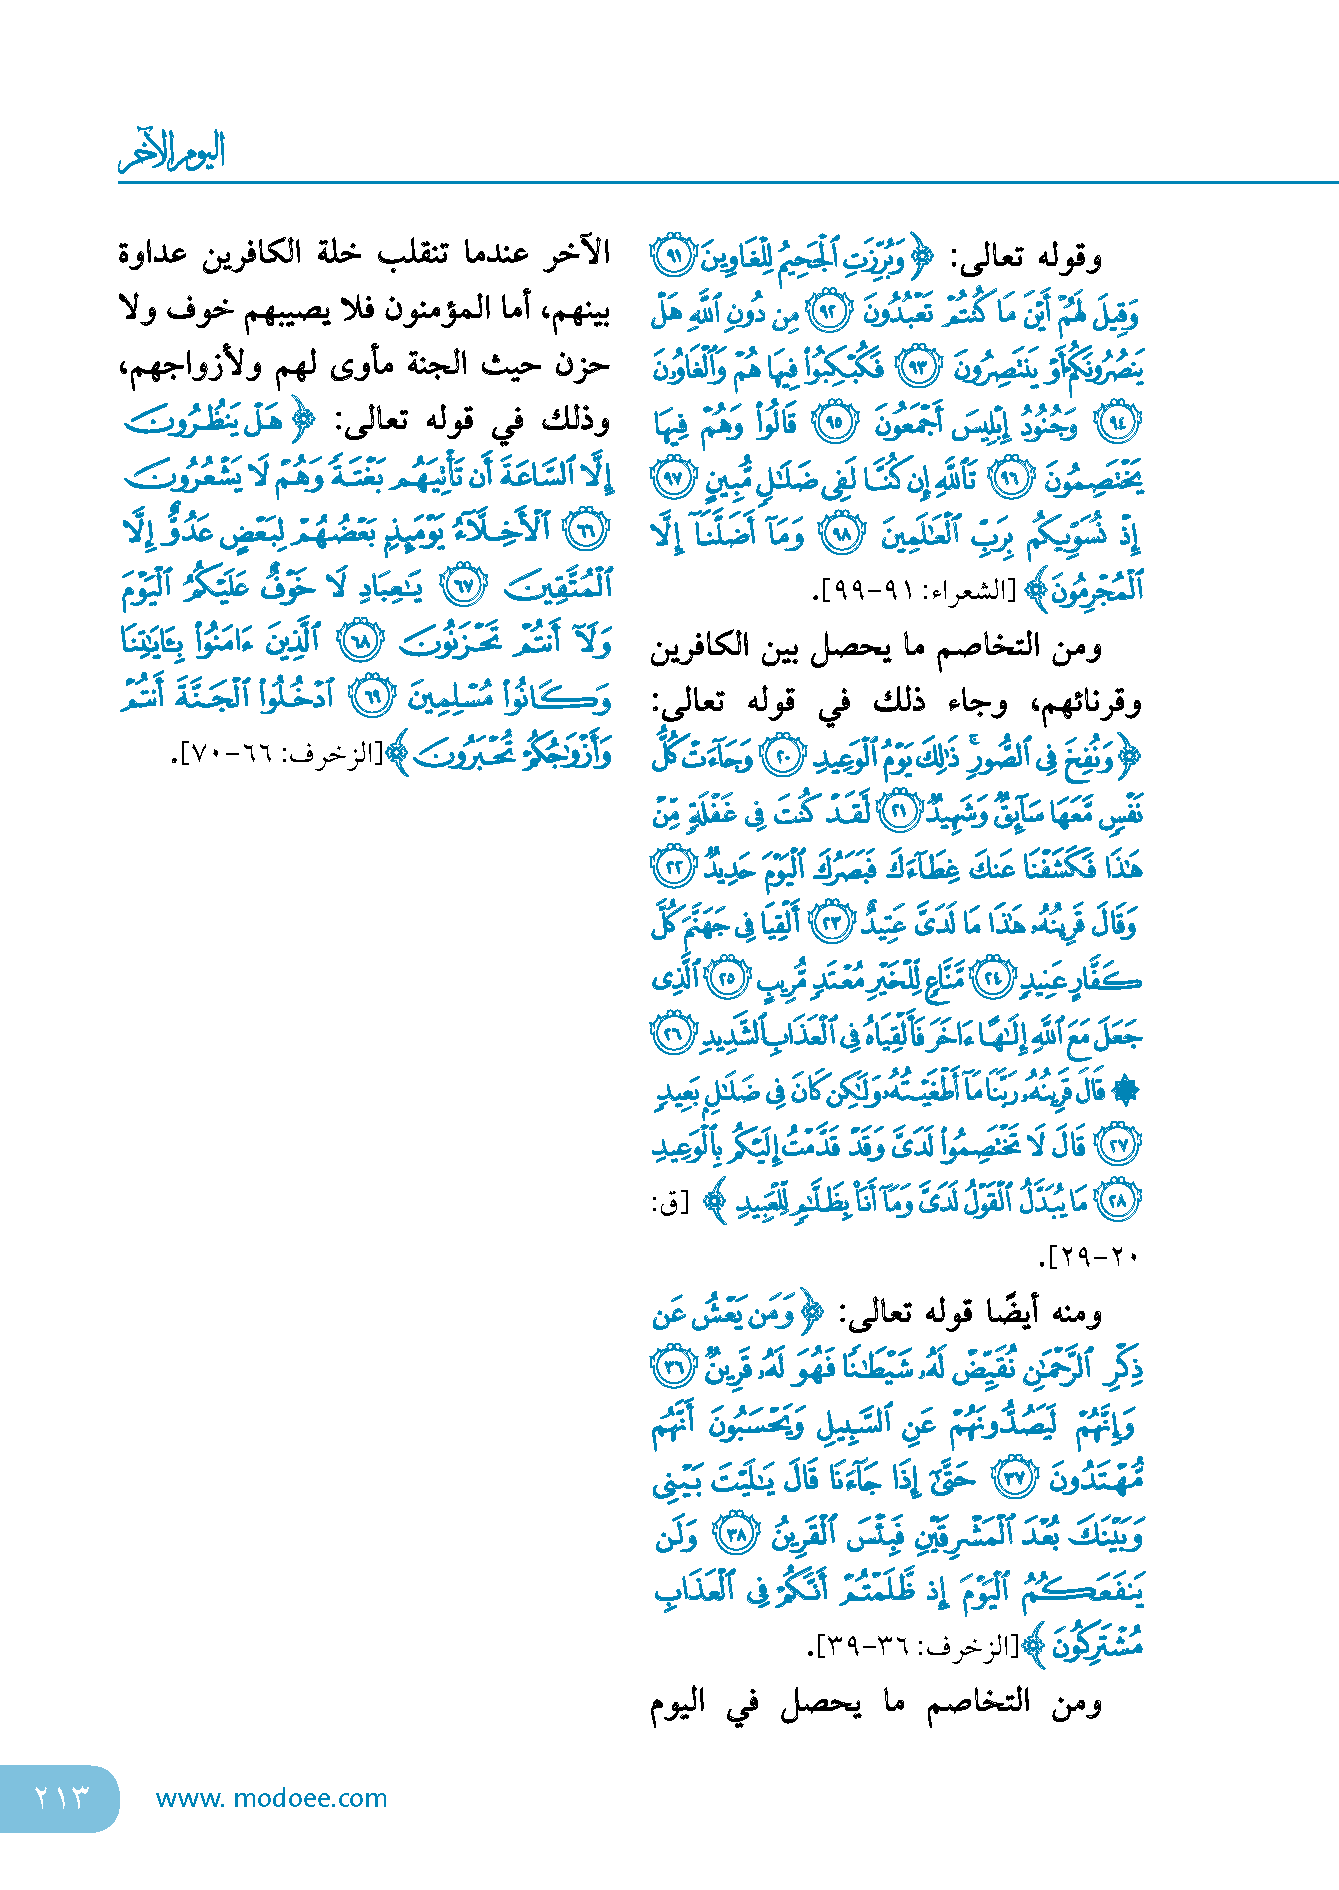 اليوم الآخر
وقوله تعالى: ﴿وَبُرِّزَتِ ٱلْجَحِيمُ لِلْغَاوِينَ ٩١
وَقِيلَ لَهُمْ أَيْنَ مَا كُنتُمْ تَعْبُدُونَ ٩٢ مِن دُونِ ٱللَّهِ هَلْ
يَنصُرُونَكُمْ أَوْ يَنتَصِرُونَ ٩٣ فَكُبْكِبُوا۟ فِيهَا هُمْ وَٱلْغَاوُۥنَ
٩٤ وَجُنُودُ إِبْلِيسَ أَجْمَعُونَ ٩٥ قَالُوا۟ وَهُمْ فِيهَا
يَخْتَصِمُونَ ٩٦ تَٱللَّهِ إِن كُنَّا لَفِى ضَلَٰلٍ مُّبِينٍ ٩٧
إِذْ نُسَوِّيكُم بِرَبِّ ٱلْعَٰلَمِينَ ٩٨ وَمَآ أَضَلَّنَآ إِلَّا
ٱلْمُجْرِمُونَ﴾ [الشعراء: ٩١-٩٩].
ومن التخاصم ما يحصل بين الكافرين
وقرنائهم، وجاء ذلك في قوله تعالى:
﴿وَنُفِخَ فِى ٱلصُّورِ ۚ ذَٰلِكَ يَوْمُ ٱلْوَعِيدِ ٢٠ وَجَآءَتْ كُلُّ
نَفْسٍ مَّعَهَا سَآئِقٌ وَشَهِيدٌ ٢١ لَّقَدْ كُنتَ فِى غَفْلَةٍ مِّنْ
هَٰذَا فَكَشَفْنَا عَنكَ غِطَآءَكَ فَبَصَرُكَ ٱلْيَوْمَ حَدِيدٌ ٢٢
وَقَالَ قَرِينُهُۥ هَٰذَا مَا لَدَىَّ عَتِيدٌ ٢٣ أَلْقِيَا فِى جَهَنَّمَ كُلَّ
كَفَّارٍ عَنِيدٍ ٢٤ مَّنَّاعٍ لِّلْخَيْرِ مُعْتَدٍ مُّرِيبٍ ٢٥ ٱلَّذِى
جَعَلَ مَعَ ٱللَّهِ إِلَٰهًا ءَاخَرَ فَأَلْقِيَاهُ فِى ٱلْعَذَابِ ٱلشَّدِيدِ ٢٦
۞ قَالَ قَرِينُهُۥ رَبَّنَا مَآ أَطْغَيْتُهُۥ وَلَٰكِن كَانَ فِى ضَلَٰلٍۭ بَعِيدٍ
٢٧ قَالَ لَا تَخْتَصِمُوا۟ لَدَىَّ وَقَدْ قَدَّمْتُ إِلَيْكُم بِٱلْوَعِيدِ
٢٨ مَا يُبَدَّلُ ٱلْقَوْلُ لَدَىَّ وَمَآ أَنَا۠ بِظَلَّٰمٍ لِّلْعَبِيدِ﴾ [ق:
٢٠-٢٩].
ومنه أيضًا قوله تعالى: ﴿وَمَن يَعْشُ عَن
ذِكْرِ ٱلرَّحْمَٰنِ نُقَيِّضْ لَهُۥ شَيْطَٰنًا فَهُوَ لَهُۥ قَرِينٌ ٣٦
وَإِنَّهُمْ لَيَصُدُّونَهُمْ عَنِ ٱلسَّبِيلِ وَيَحْسَبُونَ أَنَّهُم
مُّهْتَدُونَ ٣٧ حَتَّىٰٓ إِذَا جَآءَنَا قَالَ يَٰلَيْتَ بَيْنِى
وَبَيْنَكَ بُعْدَ ٱلْمَشْرِقَيْنِ فَبِئْسَ ٱلْقَرِينُ ٣٨ وَلَن
يَنفَعَكُمُ ٱلْيَوْمَ إِذ ظَّلَمْتُمْ أَنَّكُمْ فِى ٱلْعَذَابِ
مُشْتَرِكُونَ﴾ [الزخرف: ٣٦-٣٩].
ومن التخاصم ما يحصل في اليوم
الآخر عندما تنقلب خلة الكافرين عداوة
بينهم، أما المؤمنون فلا يصيبهم خوف ولا
حزن حيث الجنة مأوى لهم ولأزواجهم،
وذلك في قوله تعالى: ﴿هَلْ يَنظُرُونَ
إِلَّا ٱلسَّاعَةَ أَن تَأْتِيَهُم بَغْتَةً وَهُمْ لَا يَشْعُرُونَ
٦٦ ٱلْأَخِلَّآءُ يَوْمَئِذٍۭ بَعْضُهُمْ لِبَعْضٍ عَدُوٌّ إِلَّا
ٱلْمُتَّقِينَ ٦٧ يَٰعِبَادِ لَا خَوْفٌ عَلَيْكُمُ ٱلْيَوْمَ
وَلَآ أَنتُمْ تَحْزَنُونَ ٦٨ ٱلَّذِينَ ءَامَنُوا۟ بِـَٔايَٰتِنَا
وَكَانُوا۟ مُسْلِمِينَ ٦٩ ٱدْخُلُوا۟ ٱلْجَنَّةَ أَنتُمْ
وَأَزْوَٰجُكُمْ تُحْبَرُونَ﴾ [الزخرف: ٦٦-٧٠].
٢١٣
www. modoee.com